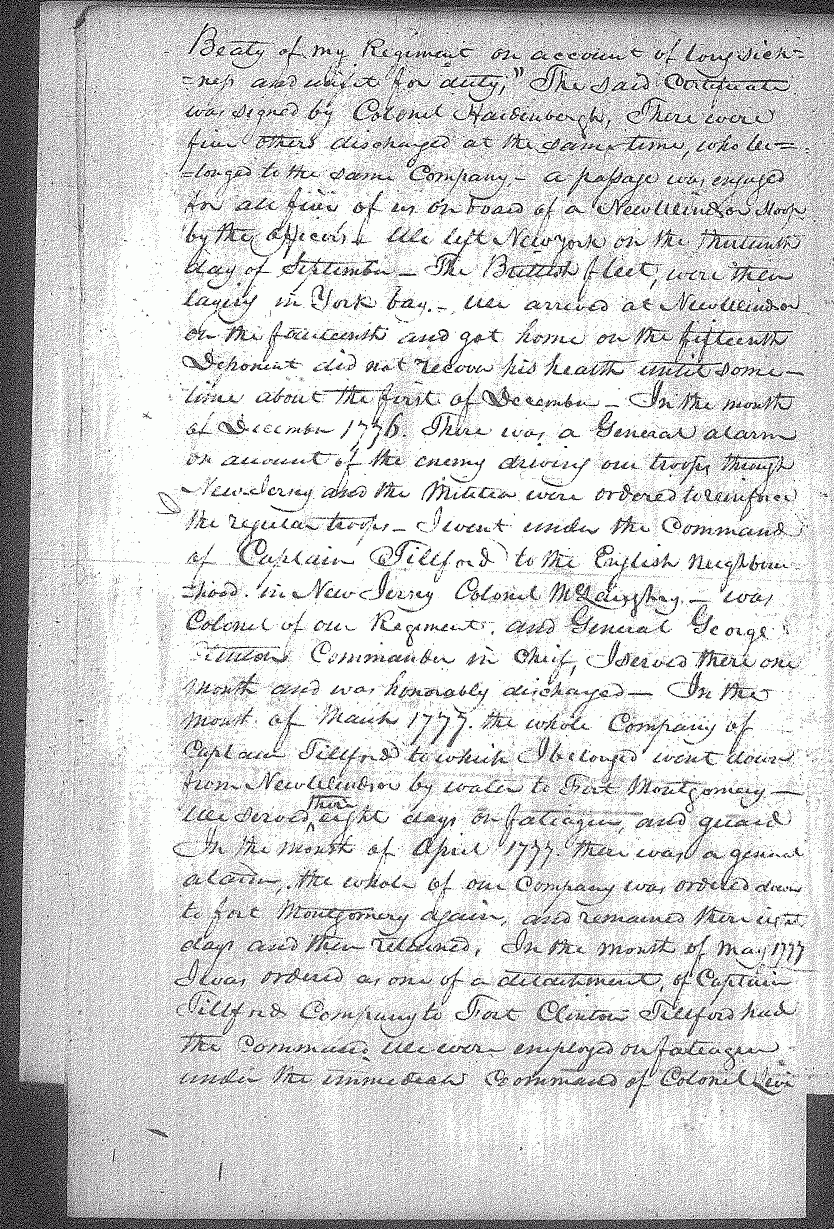 Beaty of my Regiment on account of long sick=
=ness and unfit for duty," The said Certificate
was signed by Colonel Hardenbergh, There were
five others discharged at the same time, who be=
=longed to the same Company - a passage was engaged
for all five of us on board of a New Windsor Sloop
by the officers. We left New York on the thirteenth
day of September - The Brittish fleet, were then
laying in York bay. - We arrived at New Windsor
on the fourteenth and got home on the fifteenth
Deponent did not recover his health until some-
time about the first of December - In the month
of December 1776. There was a General alarm
on account of the enemy driving our troops through
New Jersey and the Militia were ordered to reinforce
the regular troops - I went under the Command
of Captain Tillford to the English neighbour-
=hood in New Jersey Colonel McLaughry - was
Colonel of our Regiment. and General George
Clinton Commander in Chief, I served there one
month and was honorably discharged - In the
month of March 1777. the whole Company of
Captain Tillford to which I belonged went down
from New Windsor by water to Fort Montgomery -
We served there eight days on fatigue, and guard
In the month of April 1777. there was a general
alarm, the whole of our Company was ordered down
to fort Montgomery again, and remained there eight
days and then returned. In the month of May 1777
I was ordered as one of a detachment, of Captain
Tillford Company to Fort Clinton Tillford had
the Command We were employed on fatiague
under the immediate Command of Colonel Levi